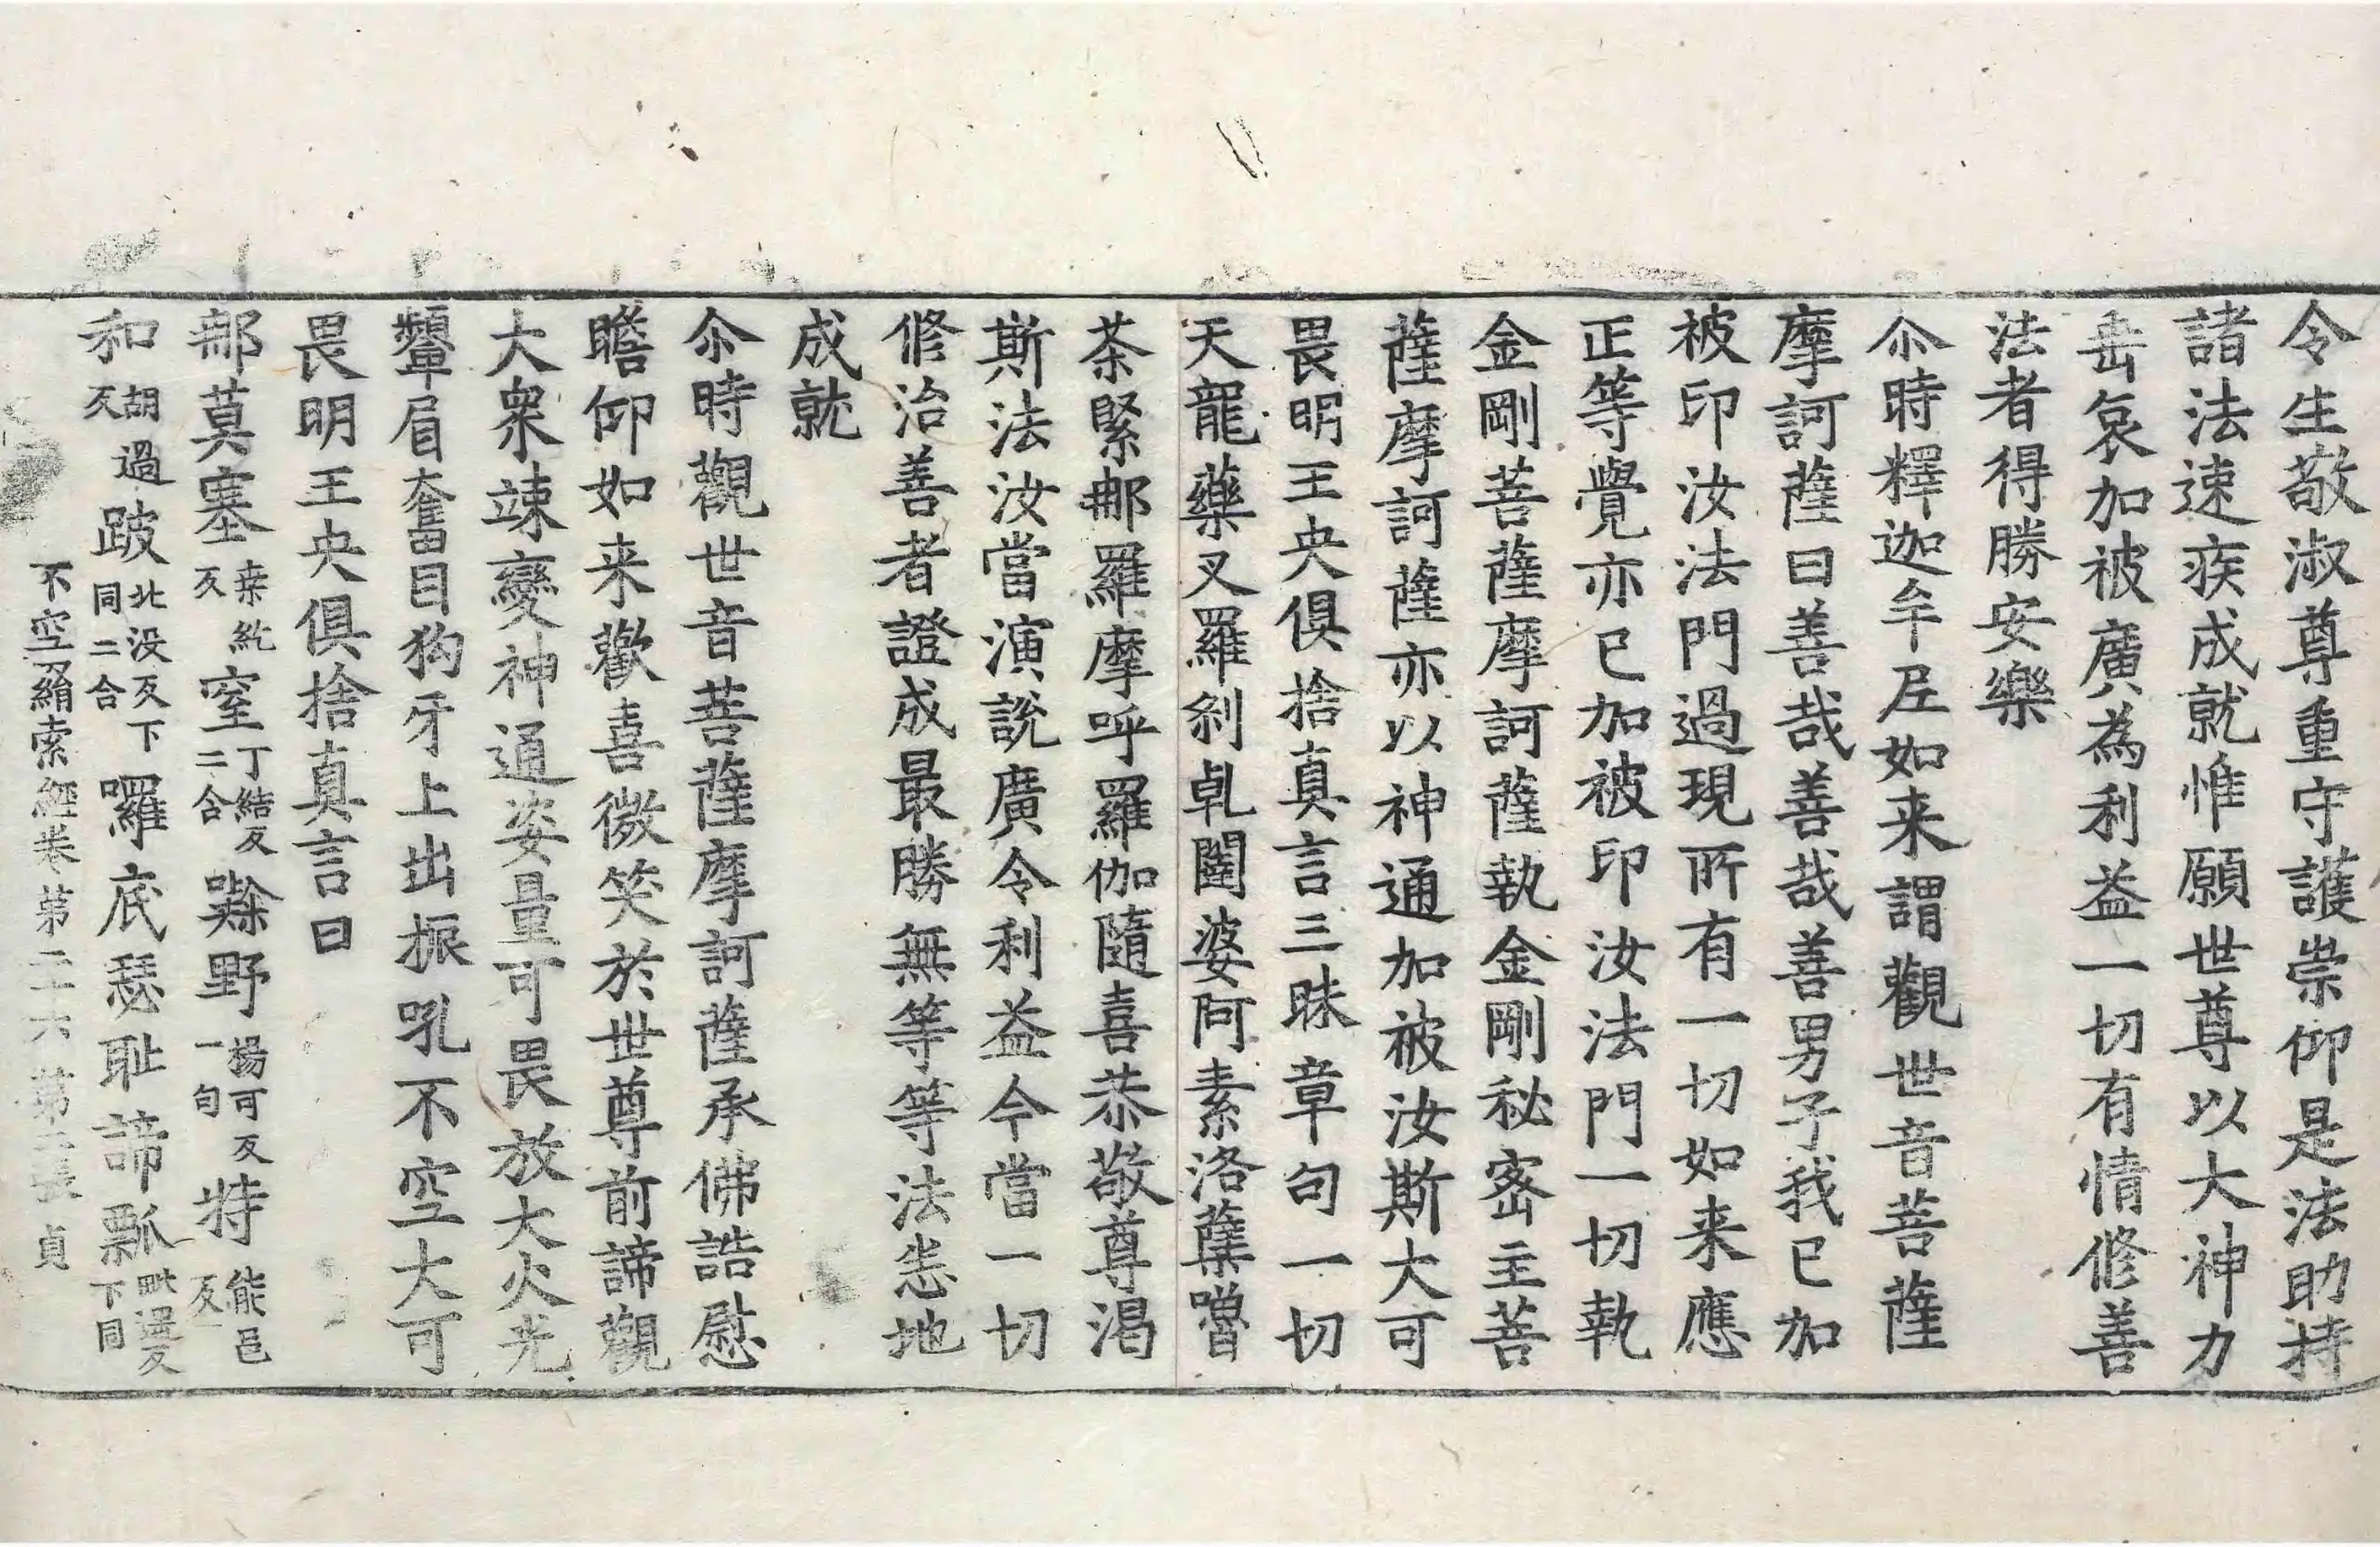 令生敬淑尊重守護崇仰是法助持
諸法速疾成就惟願世尊以大神力
垂哀加被廣為利益一切有情修善
法者得勝安樂
尒時釋迦牟尼如来謂觀世音菩薩
摩訶薩曰善哉善哉善男子我已加
被印汝法門過現所有一切如来應
正等覺亦已加被印汝法門一切執
金剛菩薩摩訶薩執金剛秘密主菩
薩摩訶薩亦以神通加被汝斯大可
畏明王央俱捨真言三昧章句一切
天龍藥叉羅剎乹闥婆阿素洛蘖嚕
茶緊那羅摩呼羅伽隨喜恭敬尊渴
斯法汝當演說廣令利益今當一切
修治善者證成最勝無等等法悉地
成就
尒時觀世音菩薩摩訶薩承佛誥慰
瞻仰如来歡喜微笑於世尊前諦觀
大衆竦變神通姿量可畏放大火光
顰眉奮目狗牙上出振吼不空大可
畏明王央俱捨真言曰
那莫塞桒紇反窒丁結反二合㘑野楊可反一句特能邑反
和胡過反跛北没反下同二合囉底瑟耻諦瓢毗遥反下同
不空羂索經卷第二十六 第二張 貞